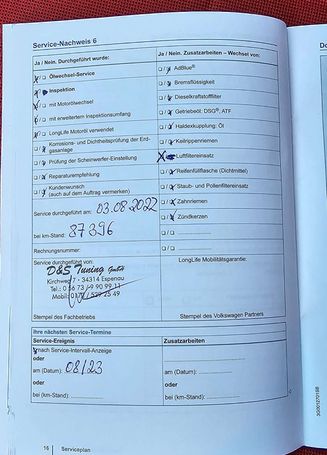 Service-Nachweis 6
Ja / Nein. Durchgeführt wurde:
Ölwechsel-Service
Inspektion
mit Motorölwechsel
mit erweitertem Inspektionsumfang
LongLife Motoröl verwendet
Korrosions- und Dichtheitsprüfung der Erdgasanlage
Prüfung der Scheinwerfer-Einstellung
Reparaturempfehlung
Kundenwunsch
(auch auf dem Auftrag vermerken)
Service durchgeführt am: 03.08.2022
bei km-Stand: 87396
Rechnungsnummer:
Service durchgeführt von:
D&S Tuning GmbH
Kirchweg 7 - 34314 Espenau
Tel.: 0 56 73 / 9 90 99 11
Stempel des Fachbetriebs
Ja / Nein. Zusatzarbeiten – Wechsel von:
AdBlue®
Bremsflüssigkeit
Dieselkraftstofffilter
Getriebeöl: DSG®, ATF
Haldexkupplung: Öl
Keilrippenriemen
Luftfiltereinsatz
Reifenfüllflasche (Dichtmittel)
Staub- und Pollenfiltereinsatz
Zahnriemen
Zündkerzen
LongLife Mobilitätsgarantie:
Stempel des Volkswagen Partners
Ihre nächsten Service-Termine
Service-Ereignis
nach Service-Intervall-Anzeige
oder
am (Datum): 08/23
oder
bei (km-Stand):
Zusatzarbeiten
am (Datum):
oder
bei (km-Stand):
16 Serviceplan